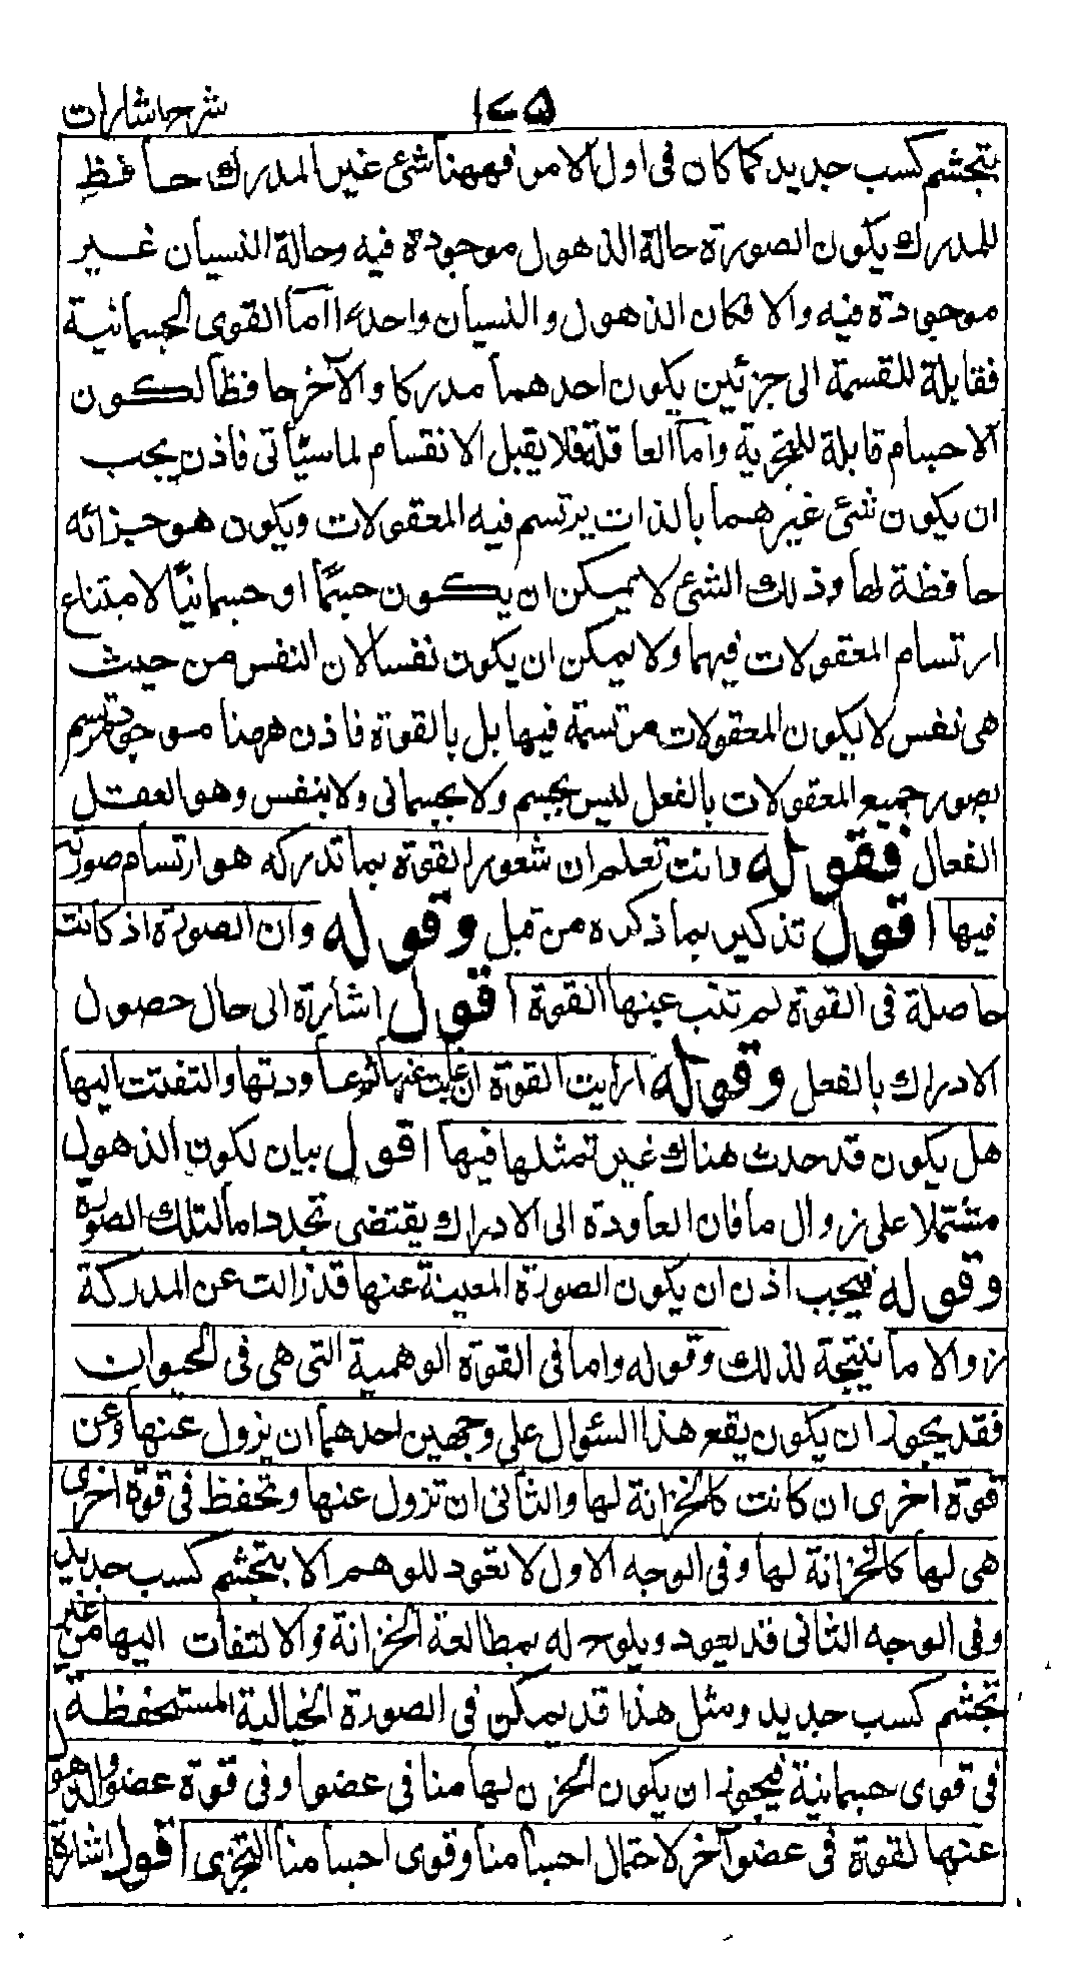 شرح اشارات ١٧٥
يتجشم كسب جديد كما كان فى اول الامر فههنا شئ غير المدرك حافظ
للمدرك يكون الصورة حالة الذهول موجودة فيه وحالة النسيان غير
موجودة فيه والا فكان الذهول والنسيان واحدا اما القوى الجسمانية
فقابلة للقسمة الى جزئين يكون احدهما مدركا والآخر حافظا لكون
الاجسام قابلة للتجزية واما العاقلة فلا يقبل الانقسام لما سيأتى فاذن يجب
ان يكون شئ غيرهما بالذات يرتسم فيه المعقولات ويكون هو خزانه
حافظة لها وذلك الشئ لا يمكن ان يكون جسما او جسمانيا لامتناع
ارتسام المعقولات فيهما ولا يمكن ان يكون نفسا لان النفس من حيث
هى نفس لا يكون المعقولات مرتسمة فيها بل بالقوة فاذن ههنا موجود مرتسم
بصور جميع المعقولات بالفعل ليس بجسم ولا بجسمانى ولا بنفس وهو العقل
الفعال فقوله وانت تعلم ان شعور القوة بما تدركه هو ارتسام صورته
فيها اقول تذكير بما ذكره من قبل وقوله وان الصورة اذ كانت
حاصلة فى القوة لم تغب عنها القوة اقول اشارة الى حال حصول
الادراك بالفعل وقوله ارايت القوة ان غابت عنها ثم عاودتها والتفتت اليها
هل يكون قد حدث هناك غير تمثلها فيها اقول بيان لكون الذهول
مشتملا على زوال ما فان العاودة الى الادراك يقتضى تجدد اما لتلك الصورة
وقوله فيجب اذن ان يكون الصورة المعينة عنها قد زالت عن المدركة
زوالا ما نتيجة لذلك وقوله واما فى القوة الوهمية التى هى فى الحيوان
فقد يجوز ان يكون يقع هذا السؤال على وجهين احدهما ان يزول عنها وعن
قوة اخرى ان كانت كالخزانة لها والثانى ان تزول عنها وتحفظ فى قوة اخرى
هى لها كالخزانة لها وفى الوجه الاول لا تعود للوهم الا بتجشم كسب جديد
وفى الوجه الثانى قد يعود ويلوح له بمطالعة الخزانة والالتفات اليها من غير
تجشم كسب جديد ومثل هذا قد يمكن فى الصورة الخيالية المستحفظة
فى قوى جسمانية فيجوز ان يكون الخزن لها منا فى عضو او فى قوة عضو والذهول
عنها لقوة فى عضو آخر لاحتمال اجسامنا وقوى اجسامنا التجزى اقول اشارة